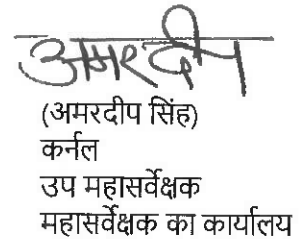 अमरदीप
(अमरदीप सिंह)
कर्नल
उप महासर्वेक्षक
महासर्वेक्षक का कार्यालय